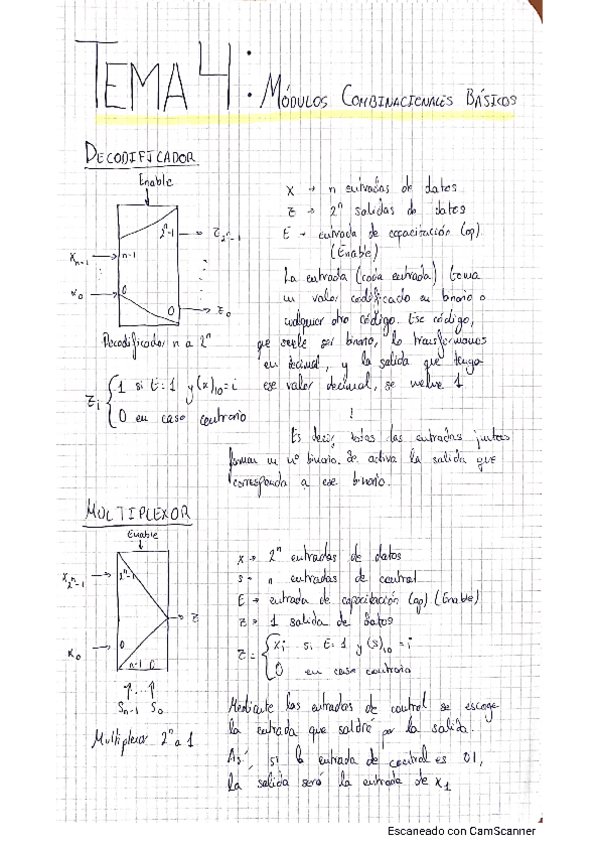 TEMA 4: MÓDULOS COMBINACIONALES BÁSICOS
DECODIFICADOR
Enable
2ⁿ-1 → z₂ⁿ₋₁
xₙ₋₁ → n-1
x₀ → 0
0 → z₀
Decodificador n a 2ⁿ
zᵢ { 1 si E=1 y (x)₁₀=i
0 en caso contrario
x → n entradas de datos
z → 2ⁿ salidas de datos
E → entrada de capacitación (op)
(Enable)
La entrada (cada entrada) toma
un valor codificado en binario o
cualquier otro código. Ese código,
que suele ser binario, lo transformamos
en decimal, y la salida que tenga
ese valor decimal, se vuelve 1
!
Es decir, todas las entradas juntas
forman un nº binario. Se activa la salida que
corresponda a ese binario.
MULTIPLEXOR
Enable
x₂ⁿ₋₁ → 2ⁿ-1
→ z
x₀ → 0
n-1 0
↑...↑
Sₙ₋₁ S₀
Multiplexor 2ⁿ a 1
x → 2ⁿ entradas de datos
s → n entradas de control
E → entrada de capacitación (op) (Enable)
z → 1 salida de datos
z = { xᵢ si E=1 y (s)₁₀=i
0 en caso contrario
Mediante las entradas de control se escoge
la entrada que saldrá por la salida.
Así, si la entrada de control es 01,
la salida será la entrada de x₁
Escaneado con CamScanner